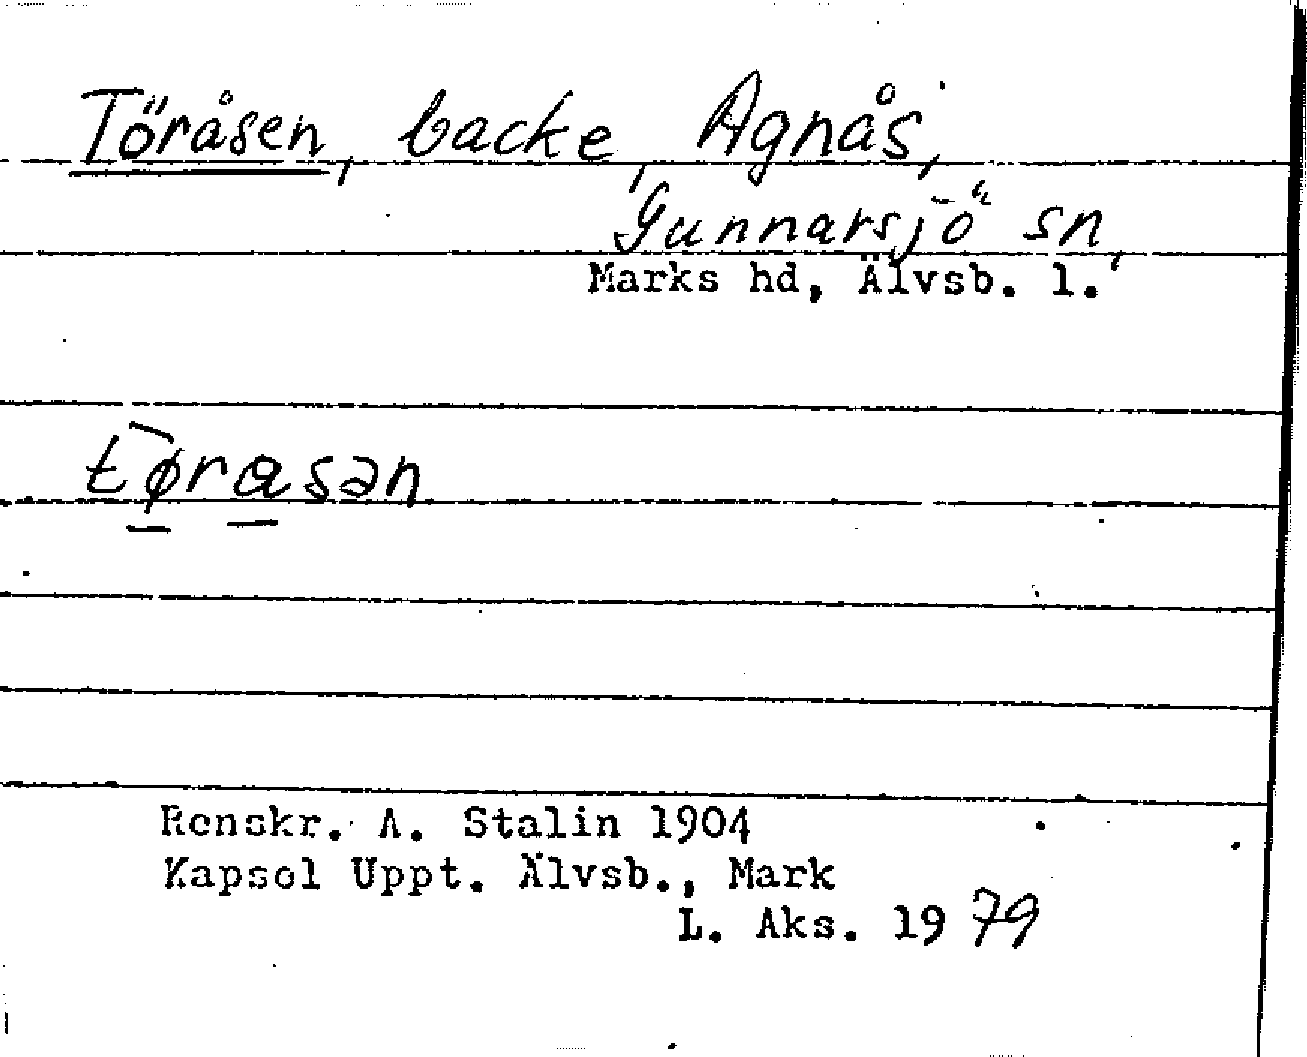 Töråsen, backe, Agnås,
Gunnarsjö sn,
Marks hd, Älvsb. l.
tørasən
Renskr. A. Stalin 1904
Kapsel Uppt. Älvsb., Mark
L. Aks. 1979